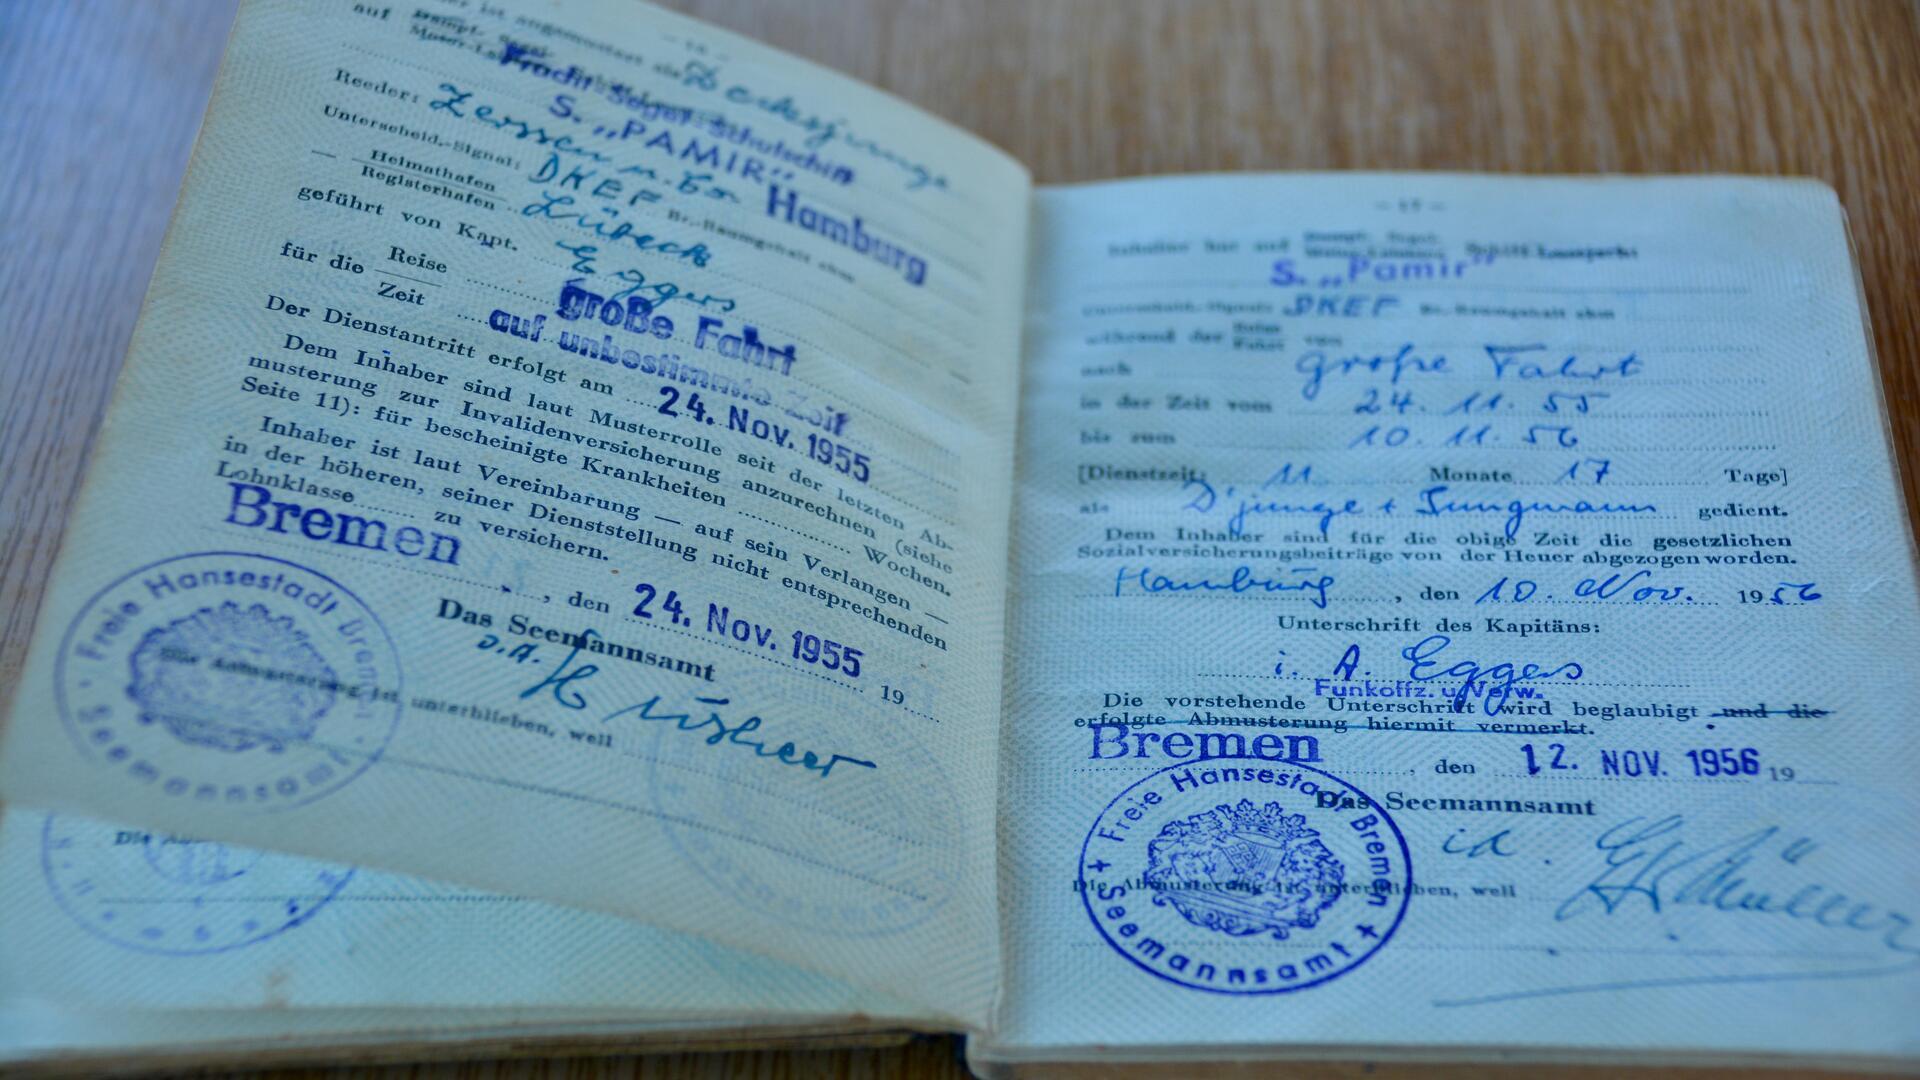 — 16 —
er ist angemustert als Decksjunge
auf Dampf- Segel-
Motor-
Fracht-Segel-Schulschiff
S. „PAMIR"
Reeder: Zerssen u. Co. Hamburg
Unterscheid.-Signal: DKEF Br.-Raumgehalt cbm
— Heimathafen
Registerhafen Lübeck
geführt von Kapt. Eggers
für die Reise
Zeit
große Fahrt
auf unbestimmte Zeit
Der Dienstantritt erfolgt am 24. Nov. 1955
Dem Inhaber sind laut Musterrolle seit der letzten Ab-
musterung zur Invalidenversicherung anzurechnen (siehe
Seite 11): für bescheinigte Krankheiten Wochen.
Inhaber ist laut Vereinbarung — auf sein Verlangen —
in der höheren, seiner Dienststellung nicht entsprechenden
Lohnklasse zu versichern.
Bremen, den 24. Nov. 1955 19
Das Seemannsamt
Freie Hansestadt Bremen
Seemannsamt
Die Abmusterung ist unterblieben, weil
Die
— 17 —
Inhaber hat auf Dampf- Segel-
S. „Pamir"
Unterscheid.-Signal: DKEF Br.-Raumgehalt cbm
während der Reise
Fahrt von
nach große Fahrt
in der Zeit vom 24. 11. 55
bis zum 10. 11. 56
[Dienstzeit: 11 Monate 17 Tage]
als D'junge + Jungmann gedient.
Dem Inhaber sind für die obige Zeit die gesetzlichen
Sozialversicherungsbeiträge von der Heuer abgezogen worden.
Hamburg, den 10. Nov. 1956
Unterschrift des Kapitäns:
i. A. Eggers
Funkoffz. u. Verw.
Die vorstehende Unterschrift wird beglaubigt und die
erfolgte Abmusterung hiermit vermerkt.
Bremen, den 12. NOV. 1956 19
Das Seemannsamt
Freie Hansestadt Bremen
+ Seemannsamt +
Die Abmusterung ist unterblieben, weil